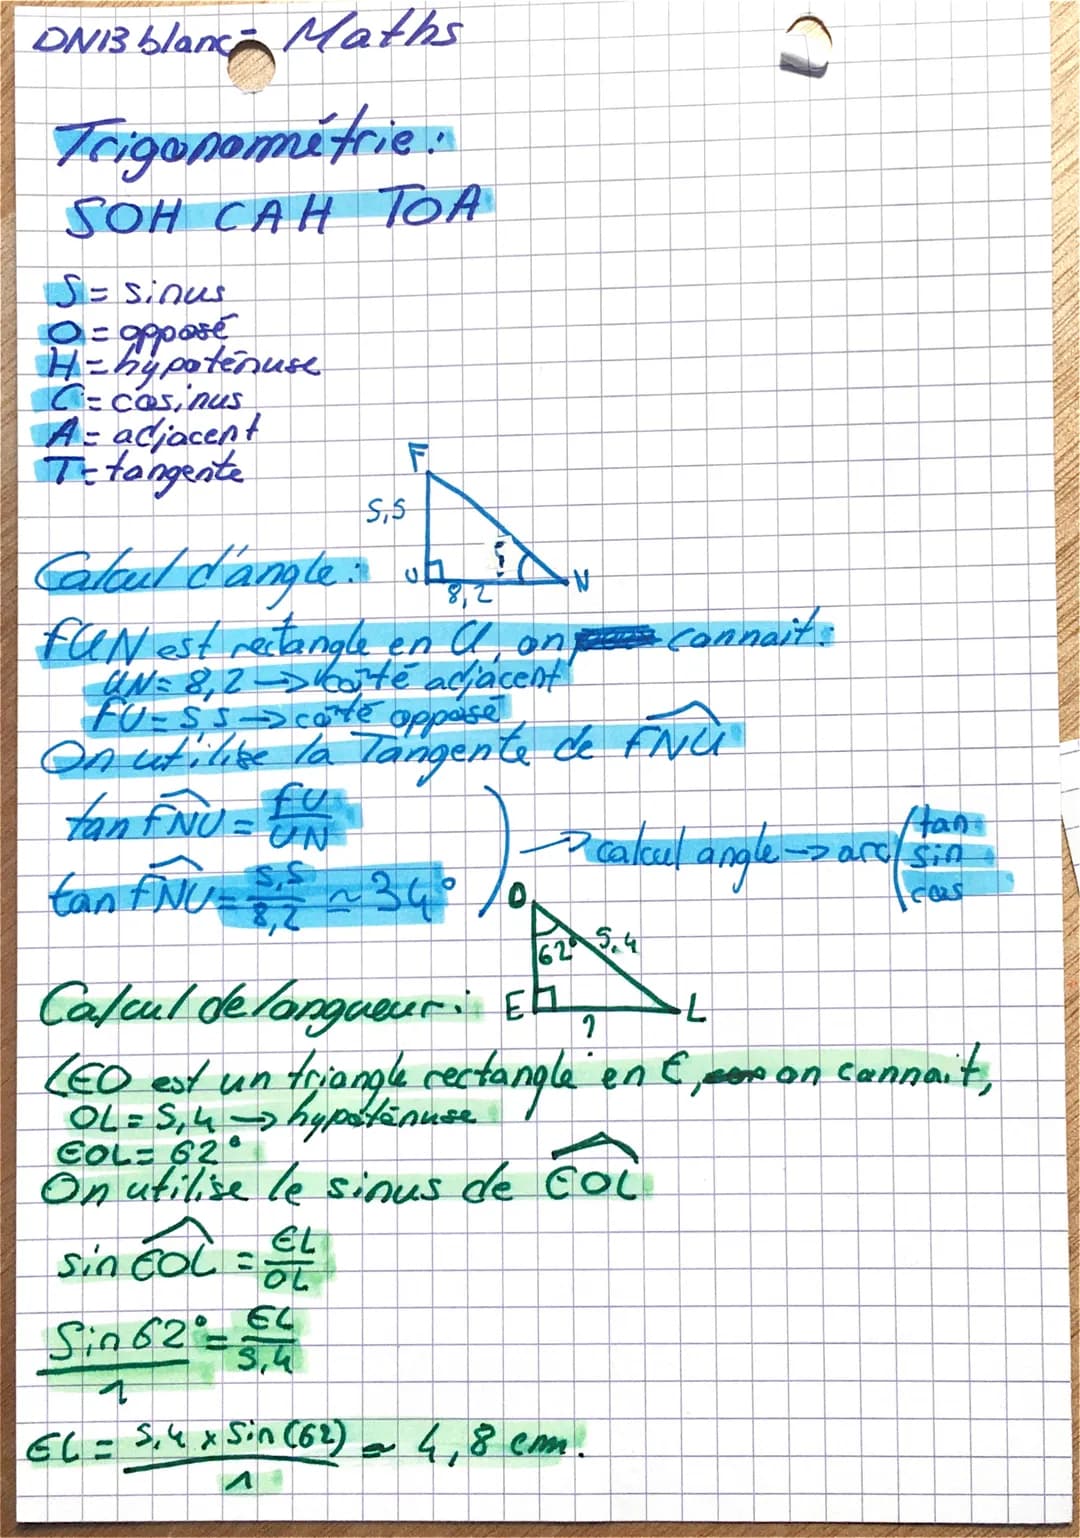 DNB blanc - Maths
Trigonométrie :
SOH CAH TOA
S = sinus
O = opposé
H = hypoténuse
C = cosinus
A = adjacent
T = tangente
F
5,5
U
8,2
?
N
Calcul d'angle :
FUN est rectangle en U, on connait :
UN = 8,2 → côté adjacent
FU = 5,5 → côté opposé
On utilise la Tangente de FNU
tan FNU = FU/UN
tan FNU = 5,5/8,2 ≈ 34°
→ calcul angle → arc ( tan
sin
cos
O
62°
5,4
E
?
L
Calcul de longueur :
LEO est un triangle rectangle en E, on connait,
OL = 5,4 → hypoténuse
EOL = 62°
On utilise le sinus de EOL
sin EOL = EL/OL
Sin 62°/1 = EL/5,4
EL = 5,4 x Sin (62)/1 ≈ 4,8 cm.